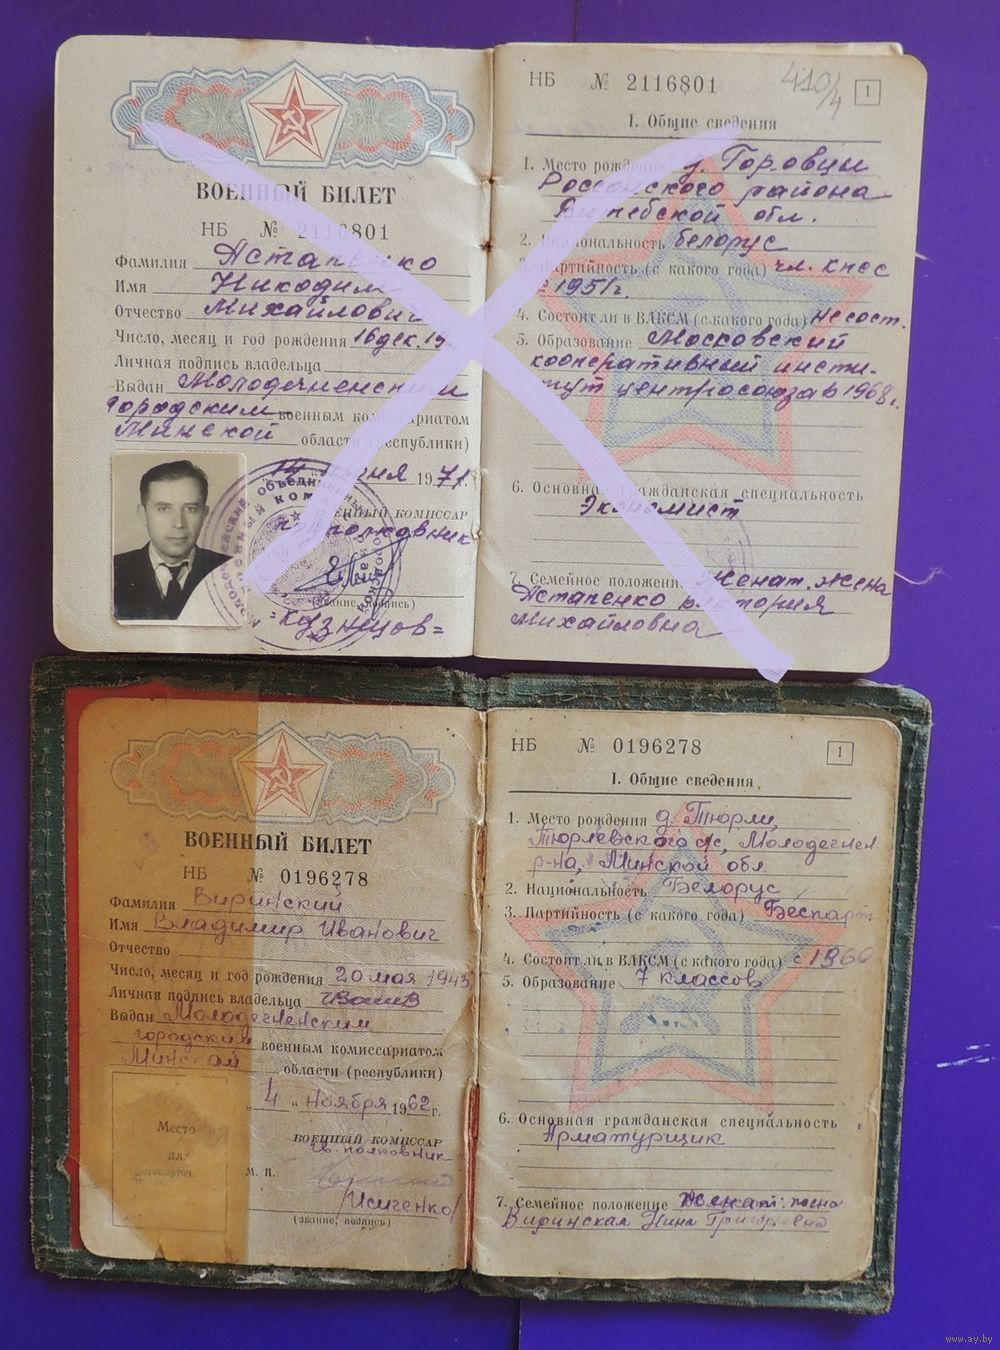 ВОЕННЫЙ БИЛЕТ
НБ № 2116801
Фамилия Астапенко
Имя Никодим
Отчество Михайлович
Число, месяц и год рождения 16 дек. 19
Личная подпись владельца
Выдан Молодечненским
городским военным комиссариатом
Минской области (республики)
"14" 1971 г.
ВОЕННЫЙ КОМИССАР
полковник
(звание, подпись)
=Кузнецов=
НБ № 2116801
410/4
1
I. Общие сведения
1. Место рождения д. Горовцы
Россонского района
Витебской обл.
2. Национальность белорус
3. Партийность (с какого года) чл. КПСС
с 1951г.
4. Состоит ли в ВЛКСМ (с какого года) не сост.
5. Образование Московский
кооперативный инсти-
тут центросоюза в 1968г.
6. Основная гражданская специальность
Экономист
7. Семейное положение Женат. Жена
Астапенко Виктория
Михайловна
ВОЕННЫЙ БИЛЕТ
НБ № 0196278
Фамилия Виринский
Имя Владимир Иванович
Отчество
Число, месяц и год рождения 20 мая 1943
Личная подпись владельца
Выдан Молодечненским
городским военным комиссариатом
Минской области (республики)
"4" ноября 1962 г.
Место
для
ВОЕННЫЙ КОМИССАР
гв. полковник
М. П.
/Исиченко/
(звание, подпись)
НБ № 0196278
1
I. Общие сведения
1. Место рождения д. Тюрли,
Тюрлевского с/с, Молодечнен.
р-на, Минской обл.
2. Национальность Белорус
3. Партийность (с какого года) Беспарт
4. Состоит ли в ВЛКСМ (с какого года) с 1960
5. Образование 7 классов
6. Основная гражданская специальность
Арматурщик
7. Семейное положение Женат: жена
Виринская Нина Григорьевна
www.ay.by